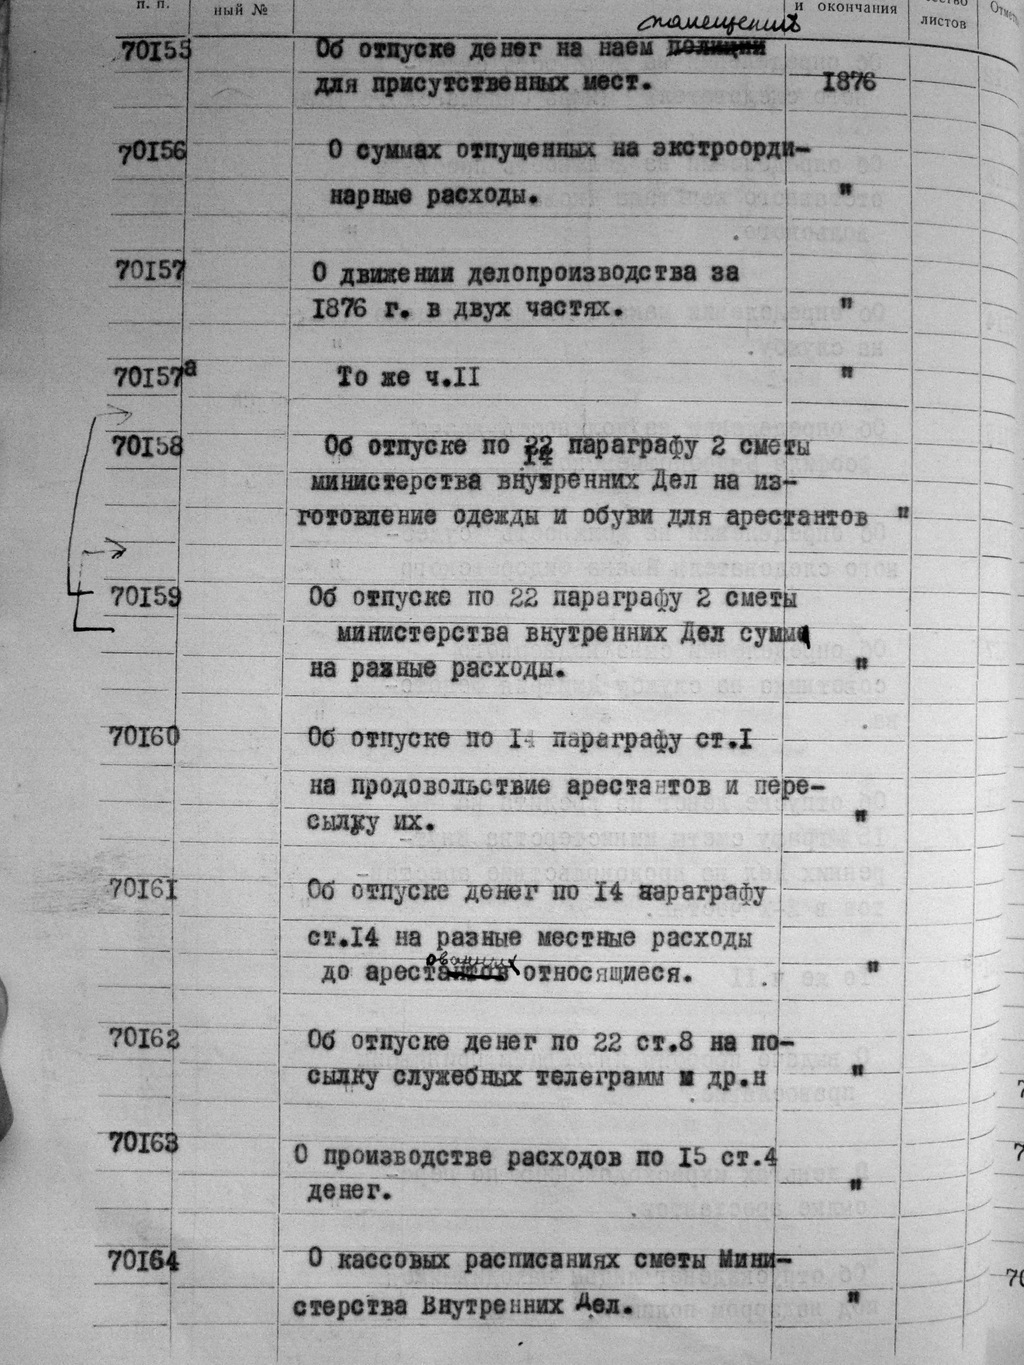 п. п.
ный №
и окончания
листов
помещений
70155 Об отпуске денег на наем полиции
для присутственных мест. 1876
70156 О суммах отпущенных на экстроорди-
нарные расходы. "
70157 О движении делопроизводства за
1876 г. в двух частях. "
70157а То же ч.II "
70158 Об отпуске по 22 параграфу 2 сметы
14
министерства внутренних Дел на из-
готовление одежды и обуви для арестантов "
70159 Об отпуске по 22 параграфу 2 сметы
министерства внутренних Дел сумм
на разные расходы. "
70160 Об отпуске по 14 параграфу ст.I
на продовольствие арестантов и пере-
сылку их. "
70161 Об отпуске денег по 14 параграфу
ст.14 на разные местные расходы
ованных
до арестантов относящиеся. "
70162 Об отпуске денег по 22 ст.8 на по-
сылку служебных телеграмм и др.н "
70163 О производстве расходов по 15 ст.4
денег. "
70164 О кассовых расписаниях сметы Мини-
стерства Внутренних Дел. "